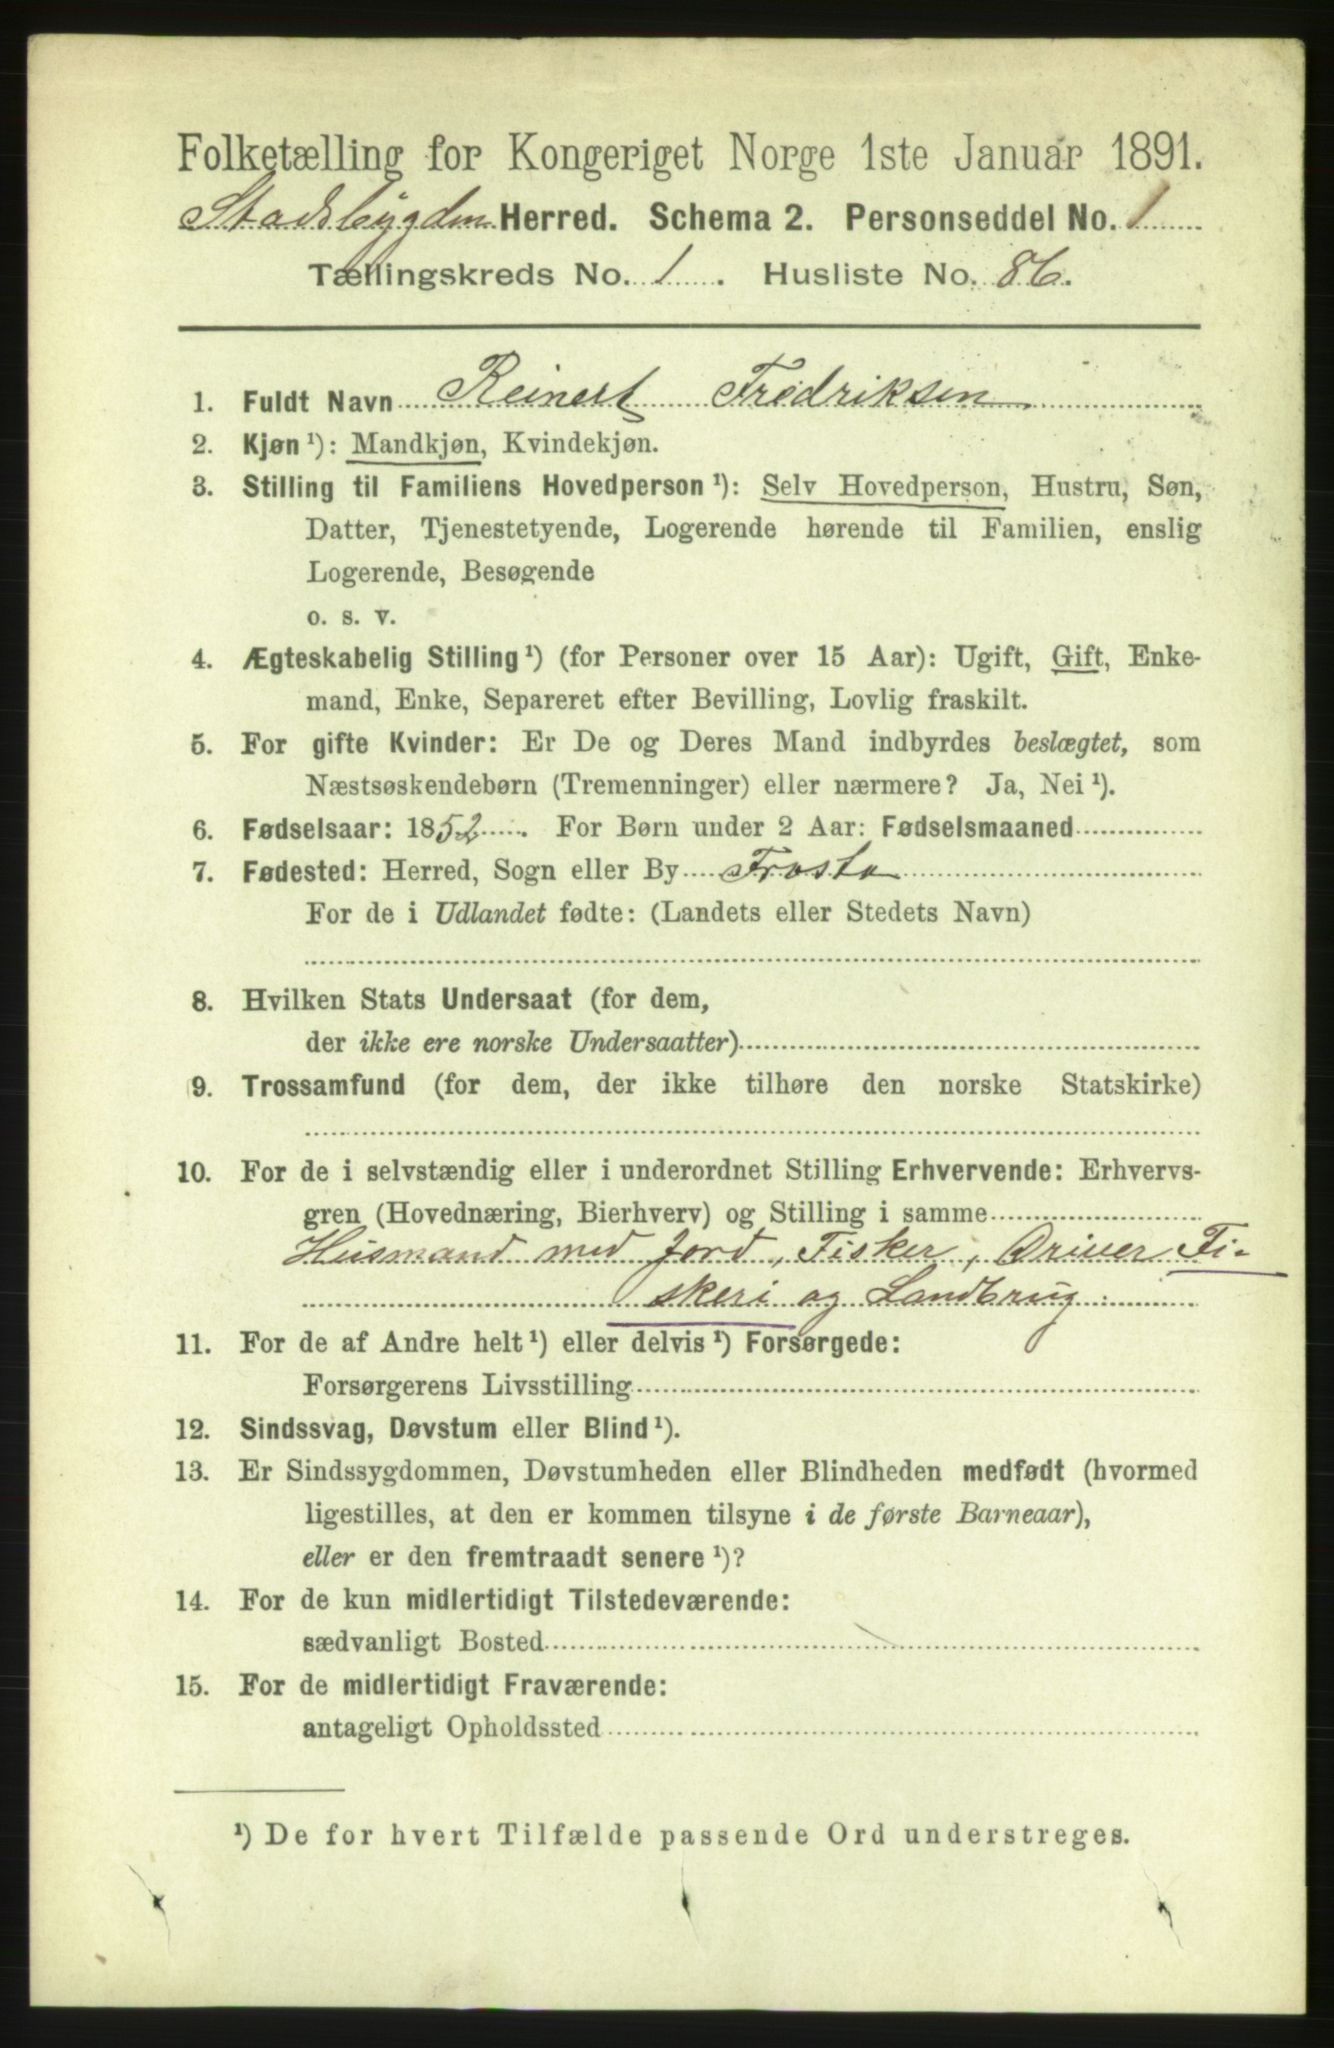 Folketælling for Kongeriget Norge 1ste Januar 1891.
Stadsbygden Herred. Schema 2. Personseddel No. 1
Tællingskreds No. 1. Husliste No. 86.
1. Fuldt Navn Reinert Fredriksen
2. Kjøn ¹): Mandkjøn, Kvindekjøn.
3. Stilling til Familiens Hovedperson ¹): Selv Hovedperson, Hustru, Søn,
Datter, Tjenestetyende, Logerende hørende til Familien, enslig
Logerende, Besøgende
o. s. v.
4. Ægteskabelig Stilling ¹) (for Personer over 15 Aar): Ugift, Gift, Enke-
mand, Enke, Separeret efter Bevilling, Lovlig fraskilt.
5. For gifte Kvinder: Er De og Deres Mand indbyrdes beslægtet, som
Næstsøskendebørn (Tremenninger) eller nærmere? Ja, Nei ¹).
6. Fødselsaar: 1852. For Børn under 2 Aar: Fødselsmaaned
7. Fødested: Herred, Sogn eller By Frosta
For de i Udlandet fødte: (Landets eller Stedets Navn)
8. Hvilken Stats Undersaat (for dem,
der ikke ere norske Undersaatter)
9. Trossamfund (for dem, der ikke tilhøre den norske Statskirke)
10. For de i selvstændig eller i underordnet Stilling Erhvervende: Erhvervs-
gren (Hovednæring, Bierhverv) og Stilling i samme
Husmand med Jord, Fisker, Driver Fi-
skeri og Landbrug.
11. For de af Andre helt ¹) eller delvis ¹) Forsørgede:
Forsørgerens Livsstilling
12. Sindssvag, Døvstum eller Blind ¹).
13. Er Sindssygdommen, Døvstumheden eller Blindheden medfødt (hvormed
ligestilles, at den er kommen tilsyne i de første Barneaar),
eller er den fremtraadt senere ¹)?
14. For de kun midlertidigt Tilstedeværende:
sædvanligt Bosted
15. For de midlertidigt Fraværende:
antageligt Opholdssted
¹) De for hvert Tilfælde passende Ord understreges.